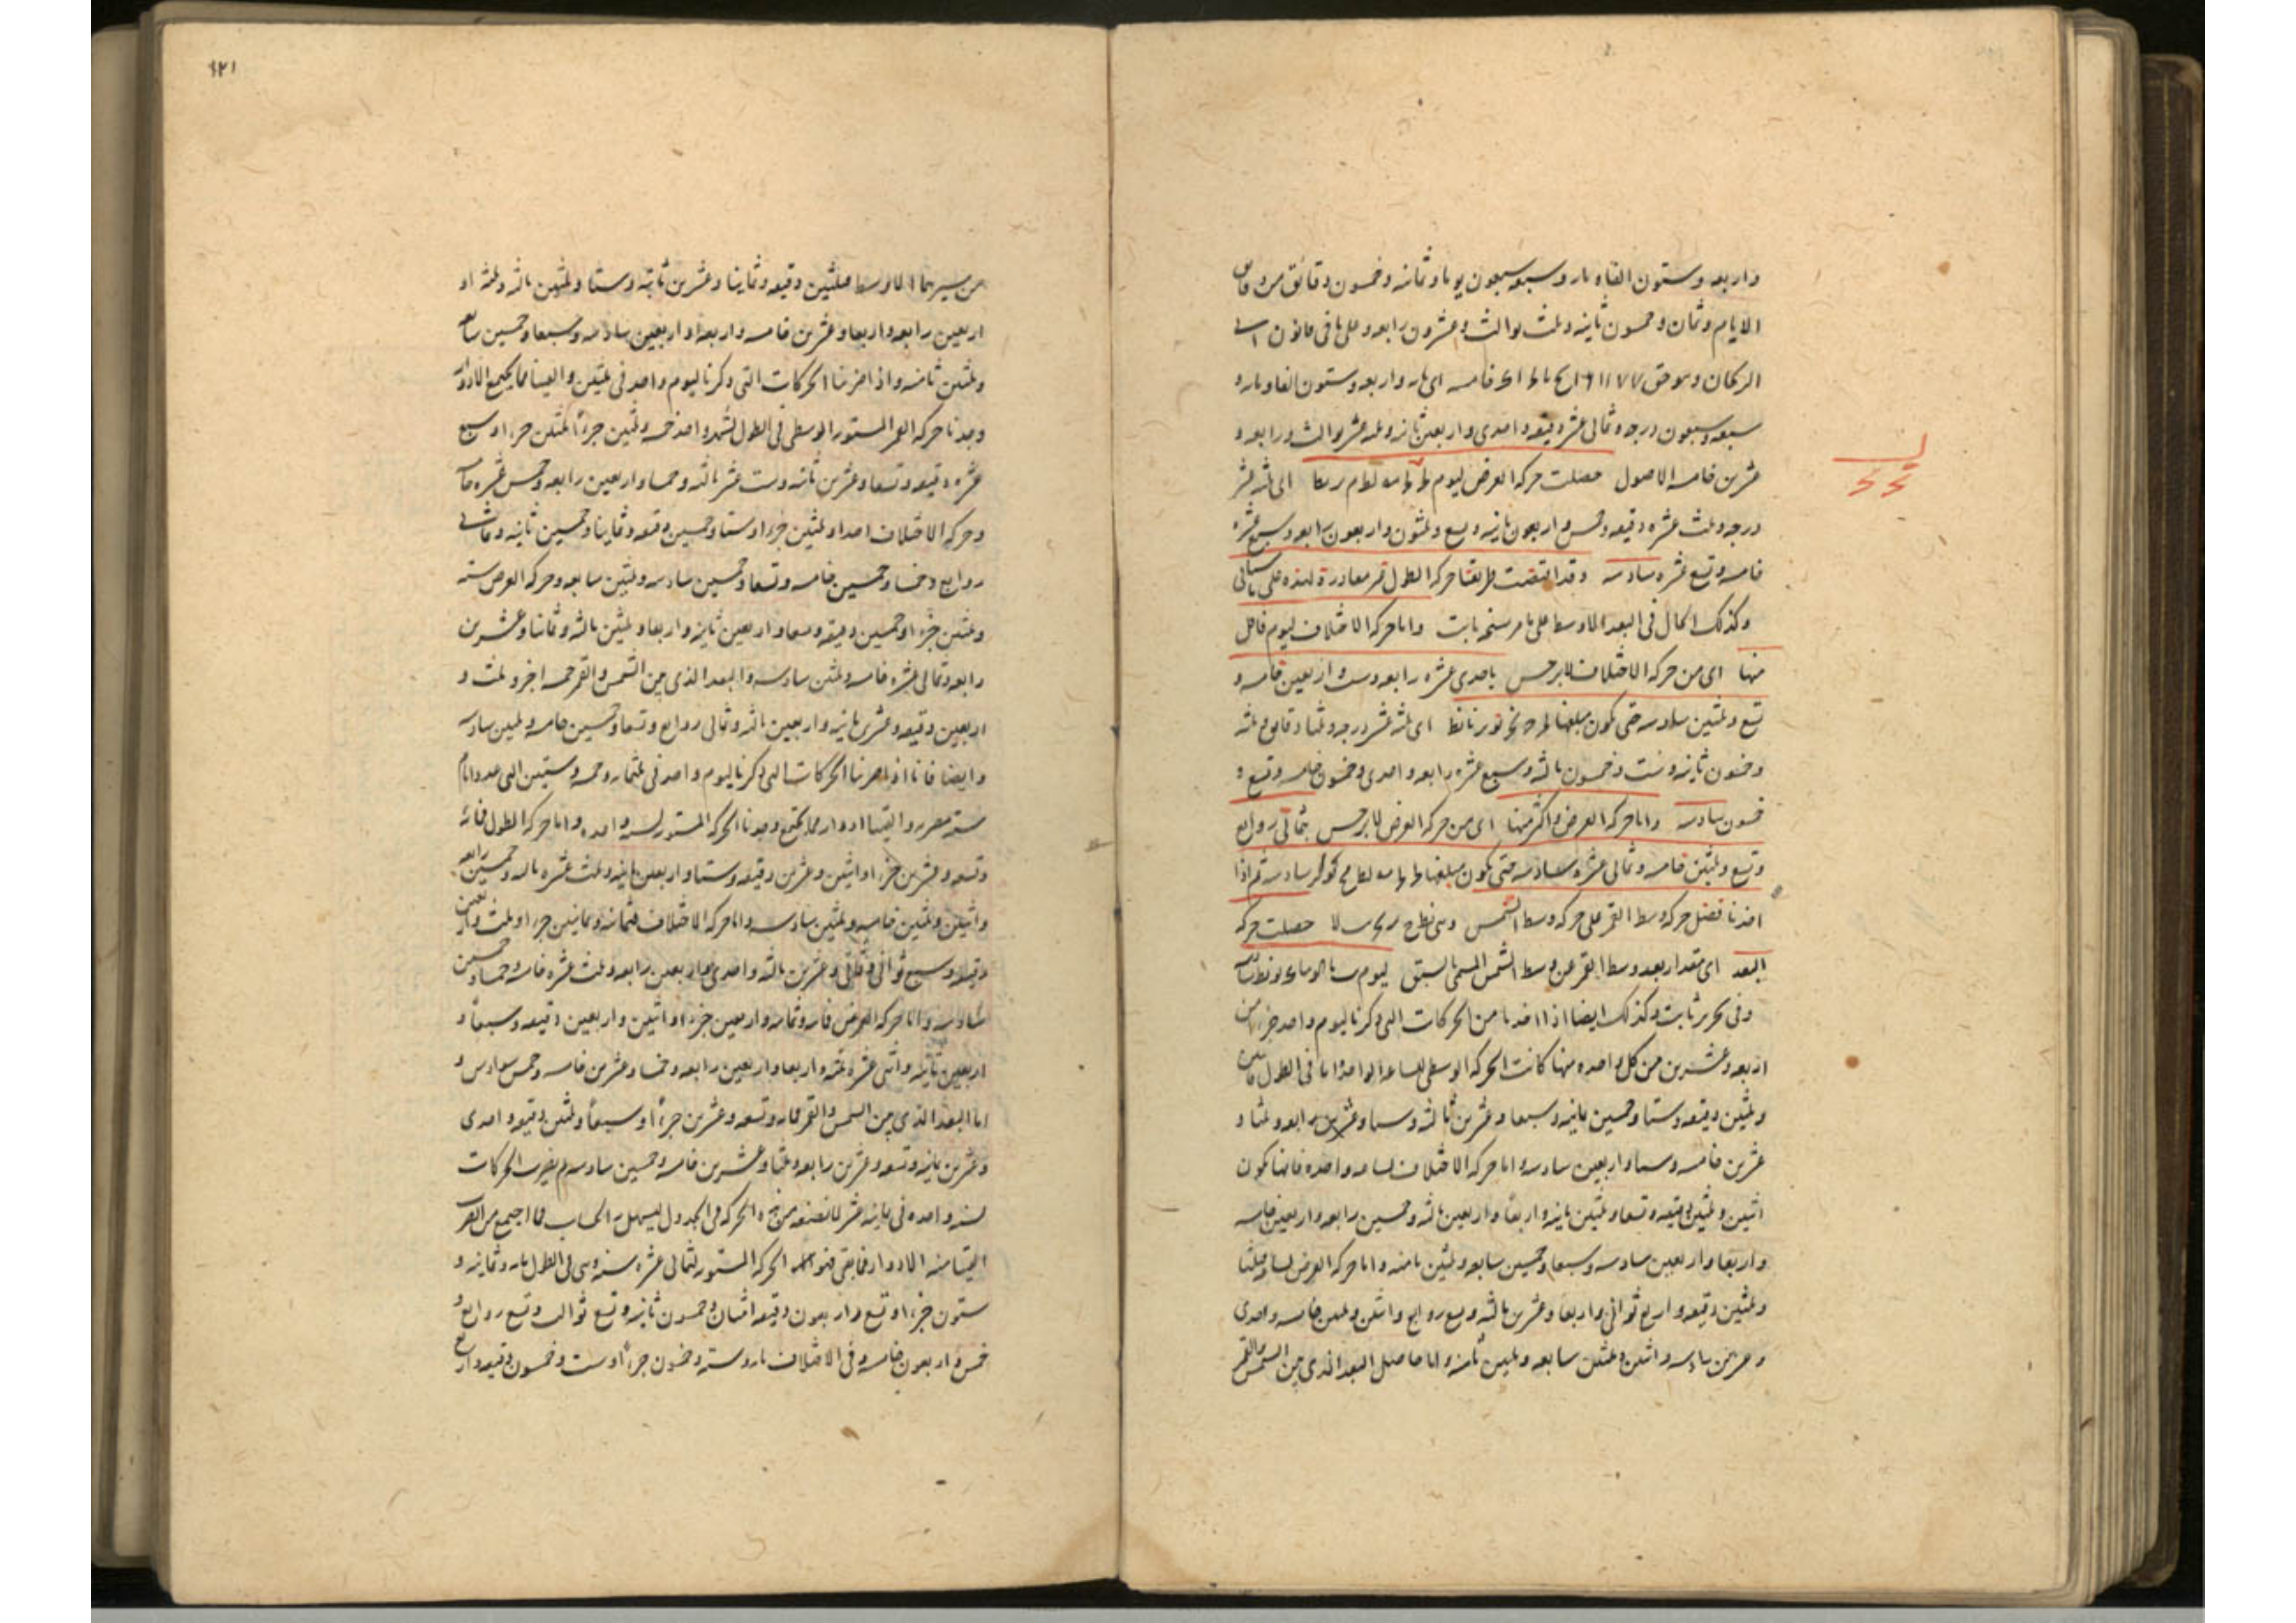 واربعه وستون الفاه مار وسبعه سبعون يوما وثمانيه وخمسون دقائق من دقائق
الايام وثمان وخمسون ثانيه وثلث ثوالث وعشرون رابعه وعلى ما فى قانون
اى ماه واربعه وستون الفا وماه و
سبعه وسبعون درجه وثمانى عشره دقيقه واحدى واربعين ثانيه وعشر ثوالث ورابعه و
عشرين خامسه الاصول حصلت حركه العرض ليوم الى ثلثه عشر
درجه وثلث عشره دقيقه وخمس واربعون ثانيه وتسع وثلثون واربعون رابعه وسبع عشره
خامسه وتسع عشره سادسه وقد اقتضت طريقتنا حركه الطول غير مغادرة لهذه على ما سياتى
وكذلك الحال فى البعد الاوسط على ما مر نسخه ثابت واما حركه الاختلاف ليوم فاقل
منها اى من حركه الاختلاف لابرخس باحدى عشره رابعه وست واربعين خامسه و
تسع وثلثين سادسه حتى تكون مبلغها اى ثلثه عشر درجه وثلثا دقايق وثلثه
وخمسون ثانيه وست وخمسون ثالثه وسبع عشره رابعه واحدى وخمسون خامسه وتسع و
خمسون سادسه واما حركه العرض فاكثر منها اى من حركه العرض لابرخس بثمانى روابع
وتسع وثلثين خامسه وثمانى عشره سادسه حتى تكون مبلغها سادسه ثم اذا
اخذنا فضل حركه وسط القمر على حركه وسط الشمس وهى حصلت حركه
البعد اى مقدار بعد وسط القمر عن وسط الشمس المسمى بالسبق ليوم
وفى تحرير ثابت وكذلك ايضا اذا اخذنا من الحركات التى ذكرنا ليوم واحد جزءا من
اربعه وعشرين من كل واحده منها كانت الحركه الوسطى لساعه الواحده اما فى الطول
وثلثين دقيقه وستا وخمسين ثانيه وسبعا وعشرين ثالثه وستا وعشرين رابعه وثلثا و
عشرين خامسه وستا واربعين سادسه واما حركه الاختلاف لساعه واحده فانها تكون
اثنين وثلثين دقيقه وتسعا وثلثين ثانيه واربعا واربعين ثالثه وخمسين رابعه واربعين خامسه
واربعا واربعين سادسه وسبعا وخمسين سابعه وثلثين ثامنه واما حركه العرض لساعه فثلثا
وثلثين دقيقه واربع ثوانى واربعا وعشرين ثالثه وتسع روابع واثنين وثلثين خامسه واحدى
وعشرين سادسه واثنين وثلثين سابعه وثلثين ثامنه واما حاصل البعد الذى بين الشمس والقمر
من سيرهما الاوسط فثلثين دقيقه وثمانيا وعشرين ثانيه وستا وثلثين ثالثه وثلثه او
اربعين رابعه واربعا وعشرين خامسه واربعا واربعين سادسه وسبعا وخمسين سابعه
وثلثين ثامنه واذا ضربنا الحركات التى ذكرنا ليوم واحد فى ثلثين والقينا مما يجتمع الادوار
وجدنا حركه القمر المستور الوسطى فى الطول لشهر واحد خمسه وثلثين جزءا ثلثين جزءا وسبع
عشره دقيقه وتسعا وعشرين ثانيه وست عشر ثالثه وخمسا واربعين رابعه وخمس عشره خامسه
وحركه الاختلاف احدا وثلثين جزءا وستا وخمسين دقيقه وثمانيا وخمسين ثانيه وثمانى
روابع وخمسا وخمسين خامسه وتسعا وخمسين سادسه وثلثين سابعه وحركه العرض سته
وثلثين جزءا وخمسين دقيقه وتسعا واربعين ثانيه واربعا وثلثين ثالثه وثمانيا وعشرين
رابعه وثمانى عشره خامسه وثلثين سادسه والبعد الذى بين الشمس والقمر خمسه اجزا وثلث و
اربعين دقيقه وعشرين ثانيه واربعين ثالثه وثمانى روابع وتسعا وخمسين خامسه وثلثين سادسه
وايضا فانا اذا ضربنا الحركات التى ذكرنا ليوم واحد فى ثلثمايه وخمسه وستين التى عدد ايام
سنه مصريه والقينا ادوارا مما يجتمع وجدنا الحركه المستوره لسنه واحده واما حركه الطول فمائه
وتسعه وعشرين جزءا واثنين وعشرين دقيقه وستا واربعين ثانيه وثلث عشره ثالثه وخمسين رابعه
واثنين وثلثين خامسه وثلثين سادسه واما حركه الاختلاف فثمانيه وثمانين جزءا وثلث واربعين
دقيقه وسبع ثوانى وثمانى وعشرين ثالثه واحدى واربعين رابعه وثلث عشره خامسه وخمسا وخمسين
سادسه واما حركه العرض فمايه وثمانيه واربعين جزءا واثنين واربعين دقيقه وسبعا و
اربعين ثانيه واثنى عشره ثالثه واربعا واربعين رابعه وخمسا وعشرين خامسه وخمس سوادس و
اما البعد الذى بين الشمس والقمر فمايه وتسعه وعشرين جزءا وسبعا وثلثين دقيقه واحدى
وعشرين ثانيه وتسعه وعشرين رابعه وثلثا وعشرين خامسه وخمسين سادسه ثم يضرب الحركات
لسنه واحده فى ثمانيه عشر لما نضعه من هذه الحركه فى الجدول ليسهل به الحساب فما اجتمع من الضرب
القينا منه الادوار فما بقى فهو الحركه المستور لثمانى عشره سنه وهى فى الطول مايه وثمانيه و
ستون جزءا وتسع واربعون دقيقه اثنان وخمسون ثانيه وتسع ثوالث وتسع روابع و
خمس واربعون خامسه وفى الاختلاف مايه وسته وخمسون جزءا وست وخمسون دقيقه واربع